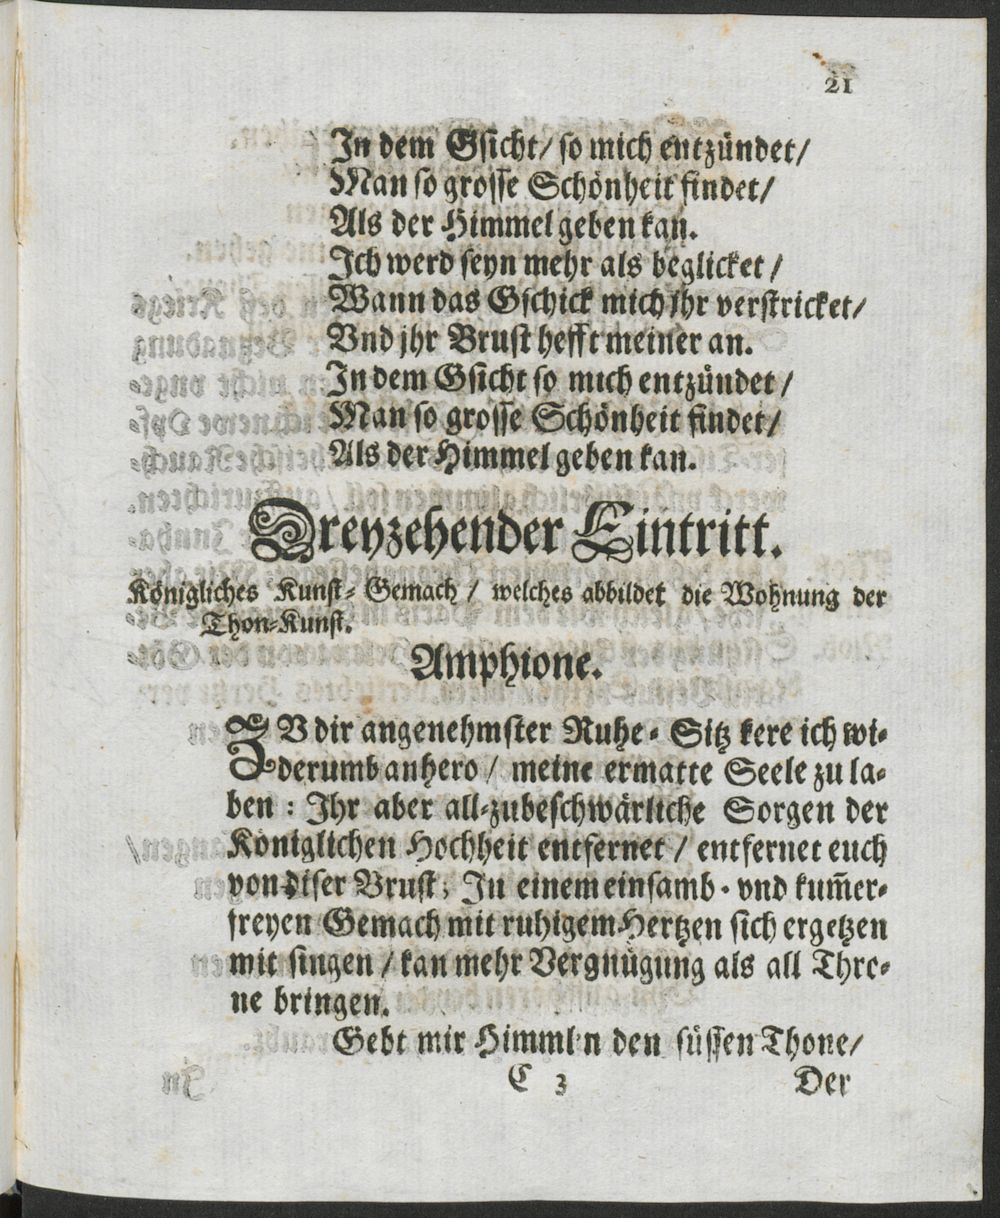 21
In dem Gsicht/ so mich entzündet/
Man so grosse Schönheit findet/
Als der Himmel geben kan.
Ich werd seyn mehr als beglicket/
Wann das Gschick mich jhr verstricket/
Vnd jhr Brust hefft meiner an.
In dem Gsicht so mich entzündet/
Man so grosse Schönheit findet/
Als der Himmel geben kan.
Dreyzehender Eintritt.
Königliches Kunst-Gemach / welches abbildet die Wohnung der
Thon-Kunst.
Amphione.
ZV dir angenehmster Ruhe-Sitz kere ich wi-
derumb anhero / meine ermatte Seele zu la-
ben : Ihr aber all-zubeschwärliche Sorgen der
Königlichen Hochheit entfernet / entfernet euch
von diser Brust, In einem einsamb- vnd kum̃er-
freyen Gemach mit ruhigem Hertzen sich ergetzen
mit singen / kan mehr Vergnügung als all Thro-
ne bringen.
Gebt mir Himmln den süssen Thone/
C 3 Der